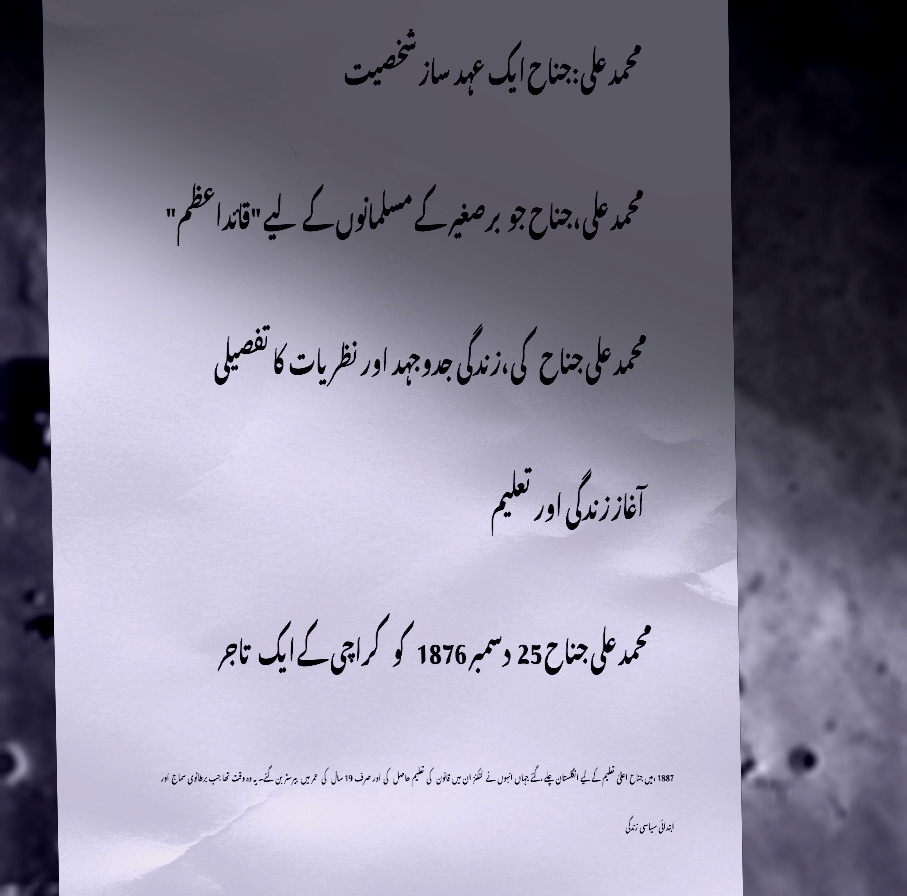 محمد علی:جناح ایک عہد ساز شخصیت
محمد علی،جناح جو برصغیر کے مسلمانوں کے لیے "قائداعظم"
محمد علی جناح کی،زندگی جدوجہد اور نظریات کا تفصیلی
آغاز زندگی اور تعلیم
محمد علی جناح 25 دسمبر 1876 کو کراچی کے ایک تاجر
1887 ،میں جناح اعلیٰ تعلیم کے لیے انگلستان چلے گئے جہاں انہوں نے لنکنز ان میں قانون کی تعلیم حاصل کی اور صرف 19 سال کی عمر میں بیرسٹر بن گئے۔ یہ وہ وقت تھا جب برطانوی سماج اور
ابتدائی سیاسی زندگی